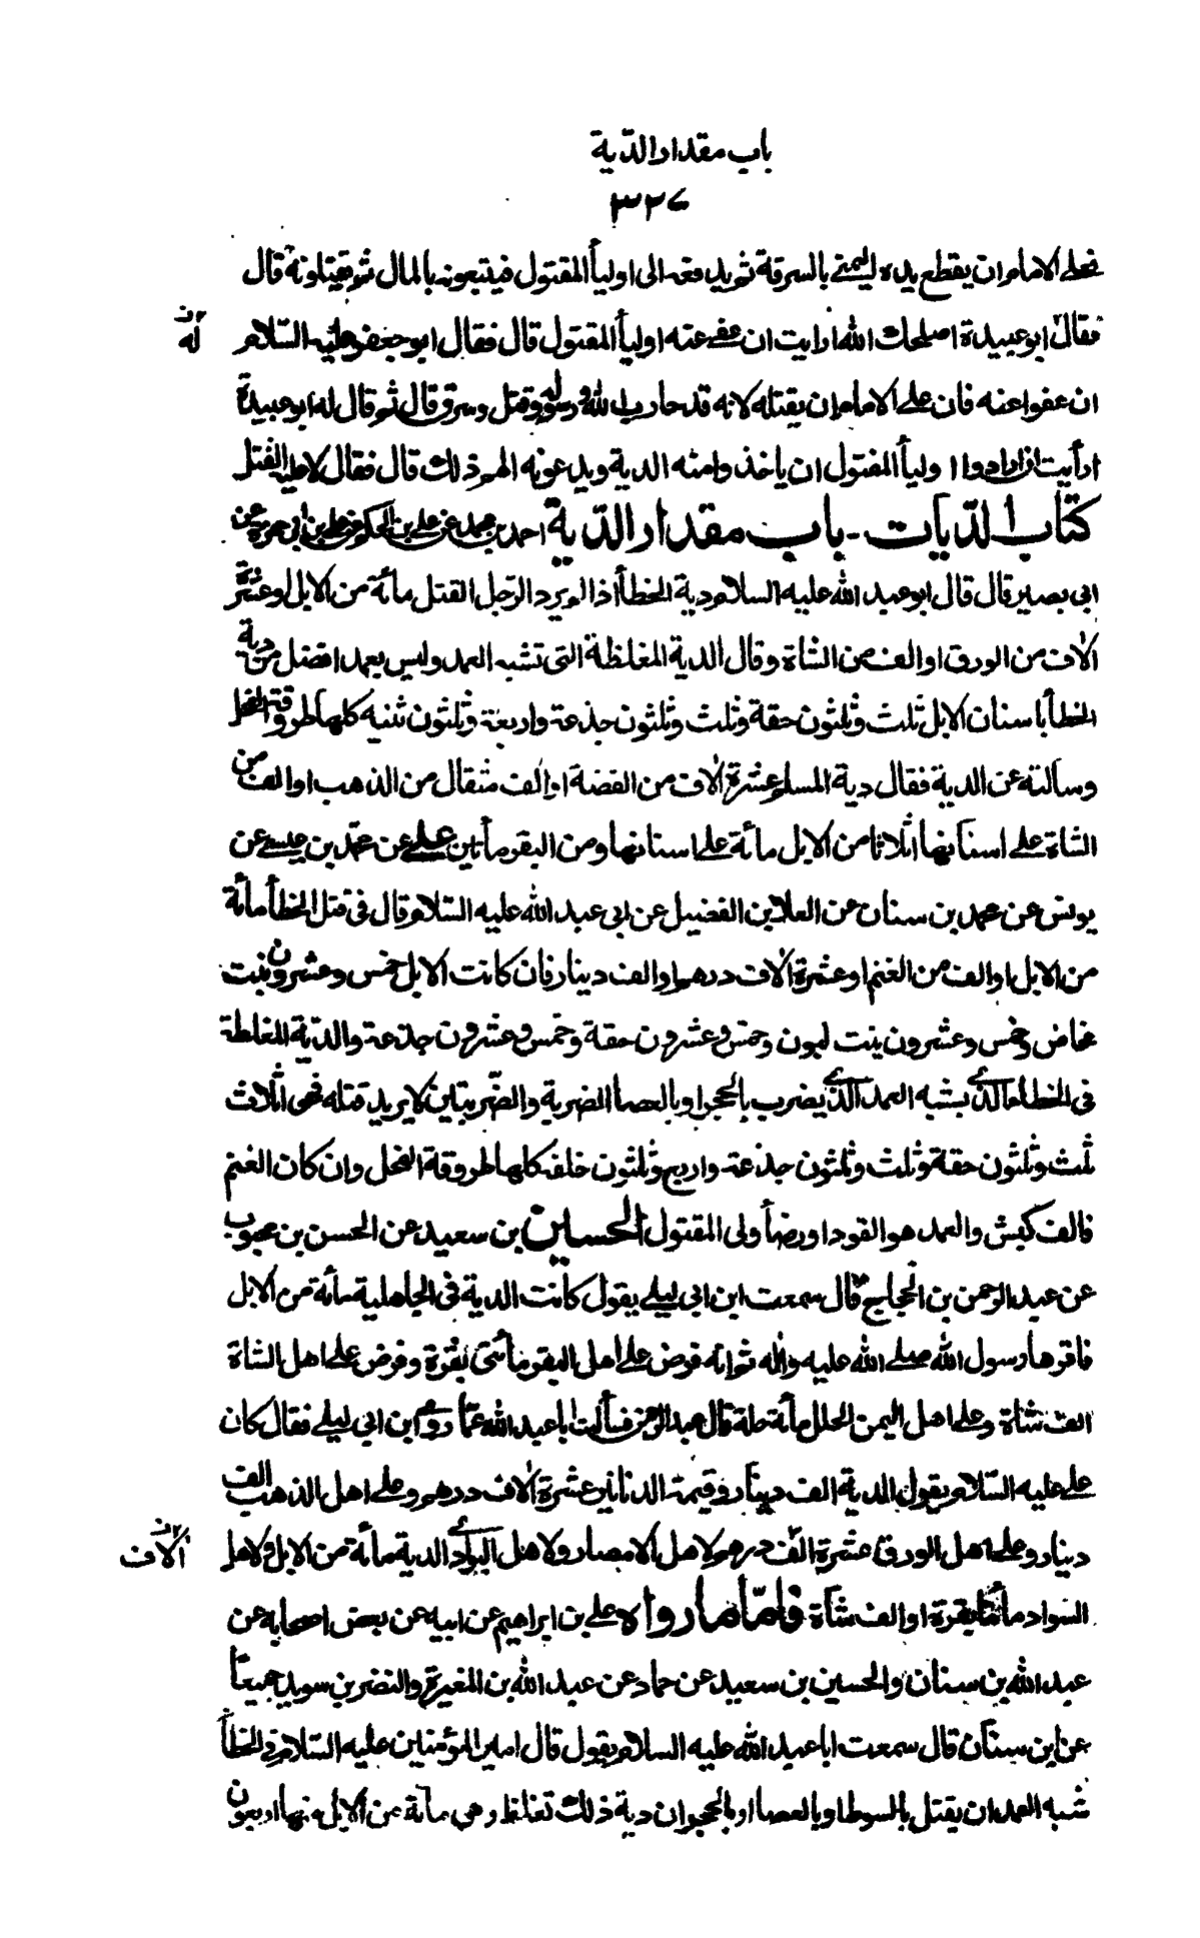 باب مقدار الدّية
٣٢٧
فعلى الامام ان يقطع يده اليمنى بالسرقة ثم يدفعه الى اوليأ المقتول فيتبعونه بالمال ثم يقتلونه قال
فقال ابو عبيدة اصلحك الله ارايت ان عفى عنه اوليأ المقتول قال فقال ابو جعفر عليه السّلام
له ن
ان عفوا عنه فان على الامام ان يقتله لانه قد حارب الله ورسوله وقتل وسرق قال ثم قال له ابو عبيدة
ارأيت ان ارادوا اوليأ المقتول ان ياخذوا منه الدية ويدعونه الهم ذلك قال فقال لا عليه القتل
كتاب الدّيات - باب مقدار الدّية احمد بن محمد عن على بن الحكم عن على بن ابى حمزة عن
ابى بصير قال قال ابو عبد الله عليه السلام دية الخطأ اذا لم يرد الرّجل القتل مائة من الابل او عشرة
الاف من الورق او الف من الشاة وقال الدية المغلظة التى تشبه العمد وليس بعمد افضل من دية
الخطأ باسنان الابل ثلث وثلثون حقة وثلث وثلثون جذعة واربعة وثلثون ثنيه كلها طروقة الفحل
وسالته عن الدية فقال دية المسلم عشرة الاف من الفضة او الف مثقال من الذهب او الف من
الشاة على اسنانها اثلاثا من الابل مائة على اسنانها ومن البقر مأتين على عن محمّد بن عيسى عن
يونس عن محمد بن سنان عن العلا بن الفضيل عن ابى عبد الله عليه السّلام قال فى قتل الخطأ مائة
من الابل او الف من الغنم او عشرة الاف درهم او الف دينار فان كانت الابل خمس وعشرون بنت
مخاض وخمس وعشرون بنت لبون وخمس وعشرون حقة وخمس وعشرون جذعة والدّية المغلظة
فى الخطأ الذى يشبه العمد الذى يضرب بالحجر او بالعصا الضربة والضّربتين لا يريد قتله فهى اثلاث
ثلث وثلثون حقة وثلث وثلثون جذعة واربع وثلثون خلفه كلها طروقة الفحل وان كان الغنم
فالف كبش والعمد هو القود او رضأ ولى المقتول الحسين بن سعيد عن الحسن بن محبوب
عن عبد الرحمن بن الحجاج قال سمعت ابن ابى ليلى يقول كانت الدية فى الجاهلية مائة من الابل
فاقرها رسول الله صلى الله عليه واله ثم انه فرض على اهل البقر مأتى بقرة وفرض على اهل الشاة
الف شاة وعلى اهل اليمن الحلل مائة حلة قال عبد الرحمن فسألت ابا عبد الله عمّا روى ابن ابى ليلى فقال كان
على عليه السّلام يقول الدية الف دينار وقيمة الدنانير عشرة الاف درهم وعلى اهل الذهب الف
دينار وعلى اهل الورق عشرة الف درهم لاهل الامصار ولاهل البوادى الدية مائة من الابل ولاهل
الاف ن
السواد مأتا بقرة او الف شاة فامّا ما رواه على بن ابراهيم عن ابيه عن بعض اصحابه عن
عبد الله بن سنان والحسين بن سعيد عن حماد عن عبد الله بن المغيرة والنضر بن سويد جميعًا
عن ابن سنان قال سمعت ابا عبد الله عليه السلام يقول قال امير المؤمنين عليه السّلام فى الخطأ
شبه العمد ان يقتل بالسوط او بالعصا او بالحجر ان دية ذلك تغلظ وهى مائة من الابل منها اربعون